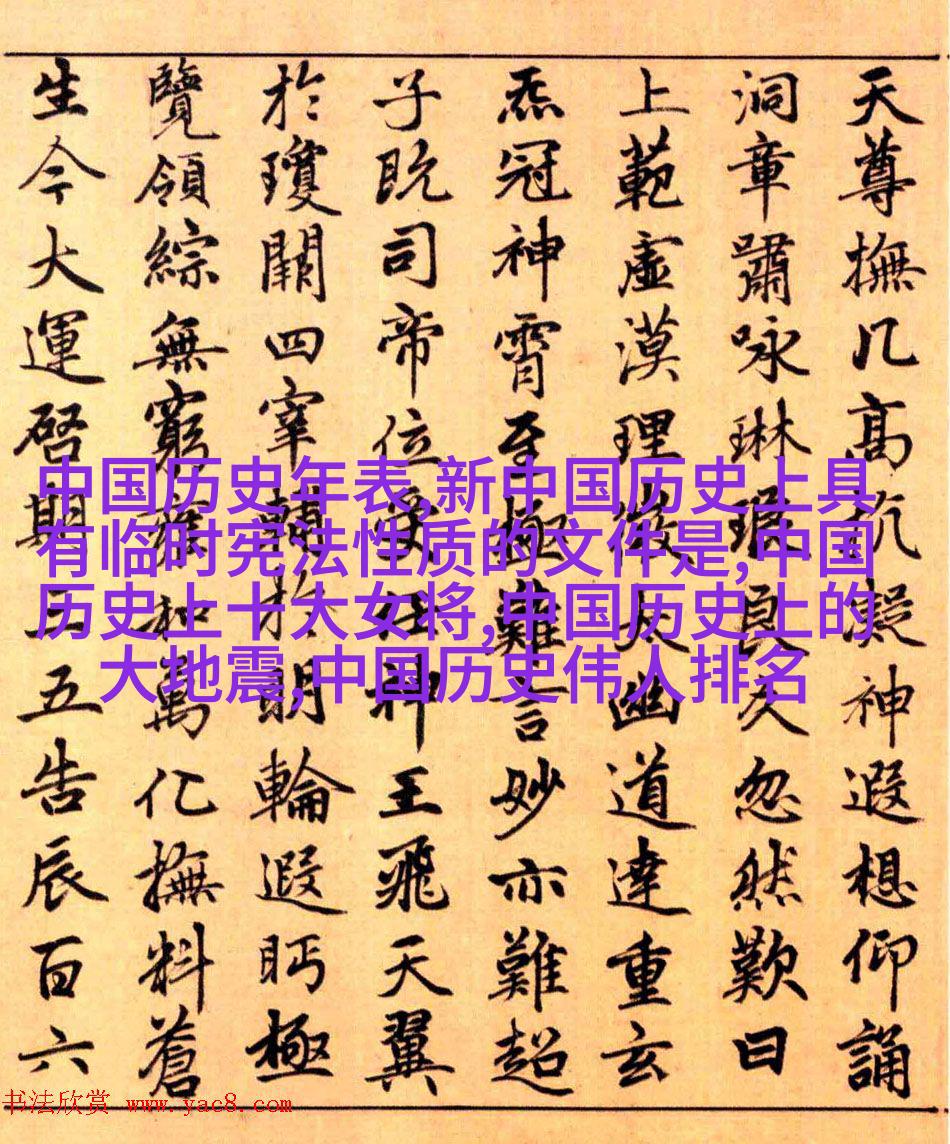 天尊撫几高抗凝神遐想仰誦
洞章嘯咏琳琅良久忽然歎曰
上範虛漠理微大幽道達重玄
炁冠神霄至極難言妙亦難超
子既司帝位受任神王飛天翼
於瓊闕四宰輔於明輪遐眄極
覽領綜無窮和萬化撫料蒼
生今大運啓期三五告辰百六
中国历史年表,新中国历史上具
有临时宪法性质的文件是,中国
历史上十大女将,中国历史上的
大地震,中国历史伟人排名
书法欣赏 www.yac8.com